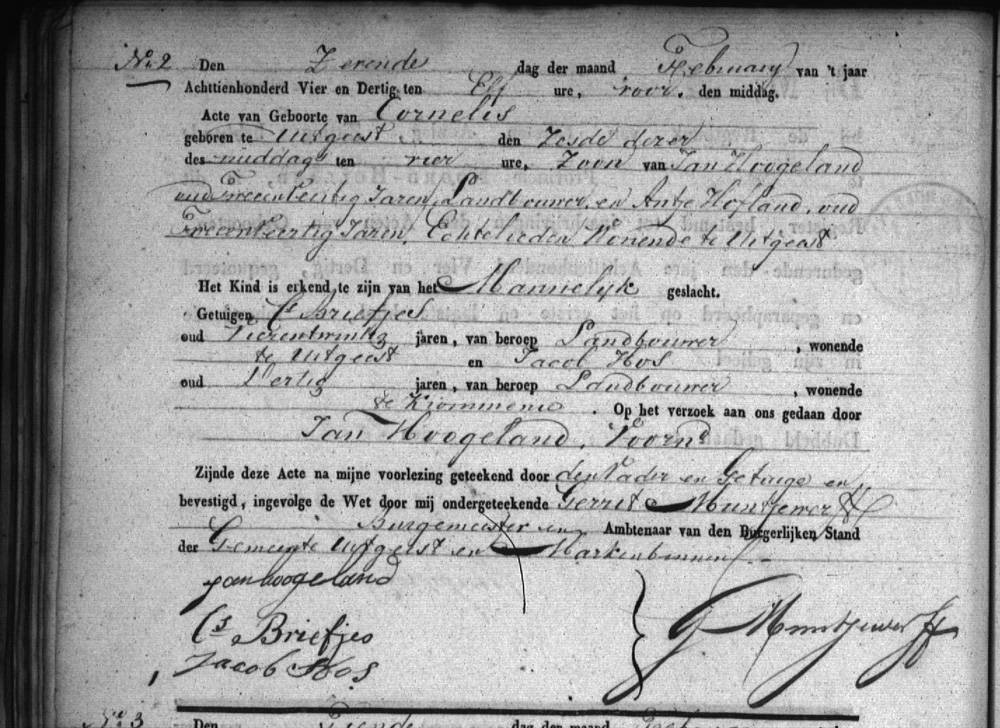 No 2 Den Zevende dag der maand February van 't jaar
Achttienhonderd Vier en Dertig, ten Elf ure, voor. den middag.
Acte van Geboorte van Cornelis
geboren te Uitgeest den Zesde dezer
des middags ten vier ure, Zoon van Jan Hoogeland
oud Tweeentwintig Jaren Landbouwer, en Antje Hofland, oud
Jaren, Echtelieden Wonende te Uitgeest
Het Kind is erkend te zijn van het Mannelyk geslacht.
Getuigen Cs Briefjes
oud Vierentwintig jaren, van beroep Landbouwer, wonende
te Uitgeest en Jacob Hos
oud Dertig jaren, van beroep Landbouwer, wonende
te Krommenie. Op het verzoek aan ons gedaan door
Jan Hoogeland, Voornd
Zijnde deze Acte na mijne voorlezing geteekend door den Vader en Getuige en
bevestigd, ingevolge de Wet door mij ondergeteekende Gerrit Muntjewerff
Burgemeister en Ambtenaar van den Burgerlijken Stand
der Gemeente Uitgeest en Markenbinnen
jan hoogeland
Cs Briefjes
Jacob Hos
G Muntjewerff
No 3 Den dag der maand